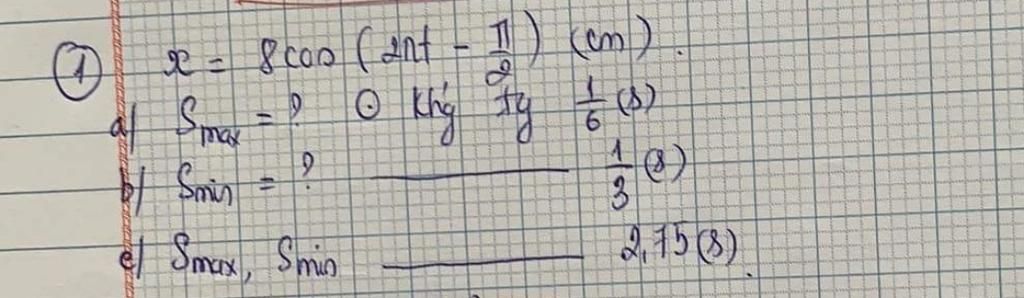 ① x = 8cos (2πt - π/2) (cm).
a/ Smax = ? ⊙ khg tg 1/6 (s)
b/ Smin = ? ——— 1/3 (s)
c/ Smax, Smin ——— 2,75 (s).